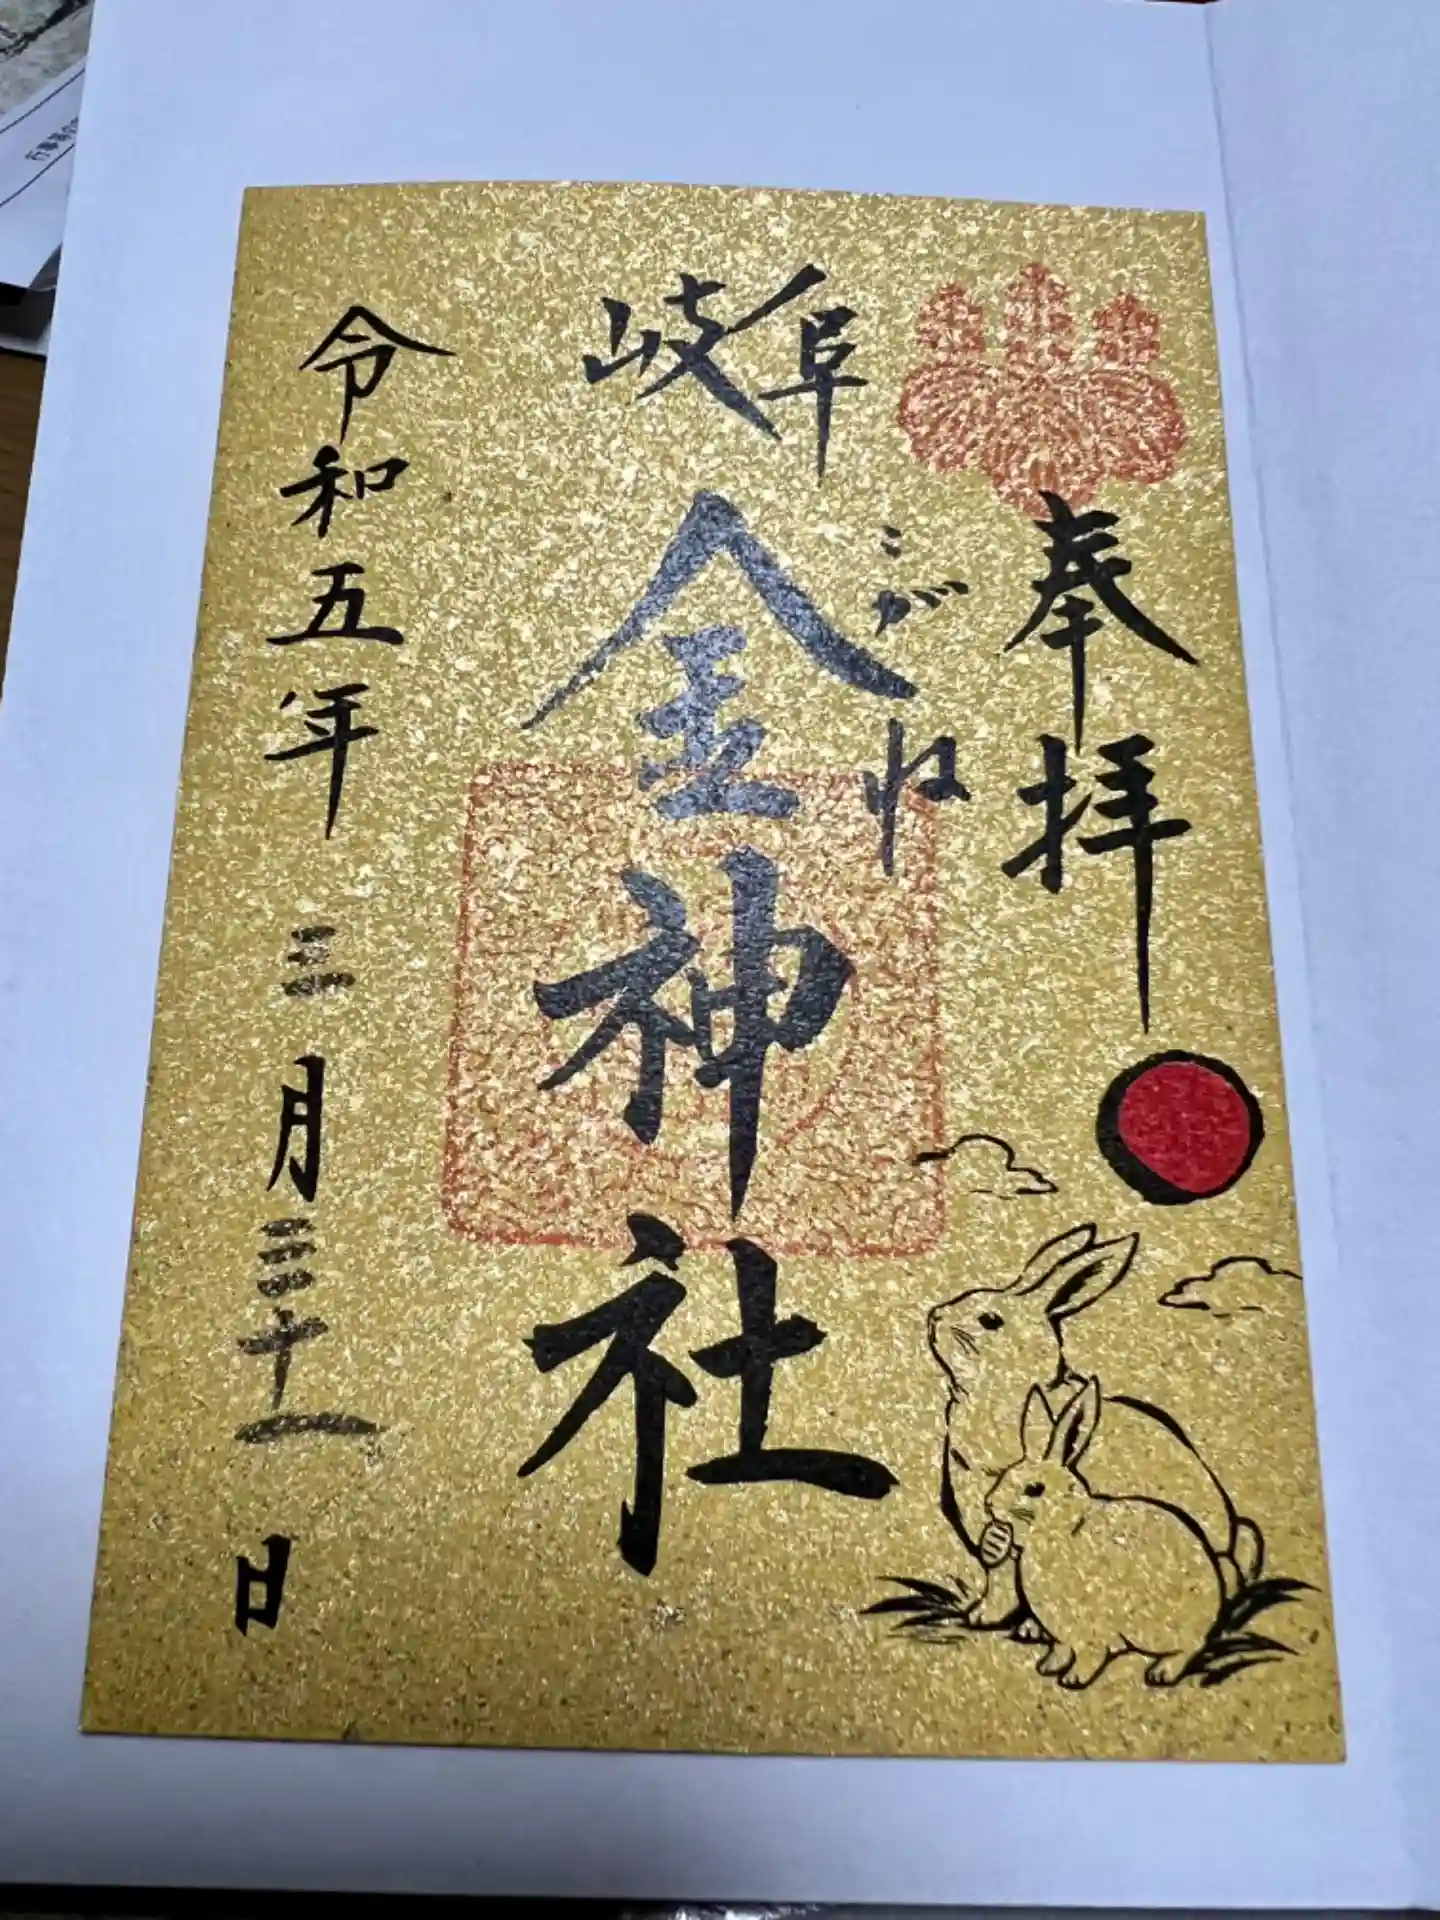 奉拝
岐阜
こがね
金神社
令和五年三月三十一日